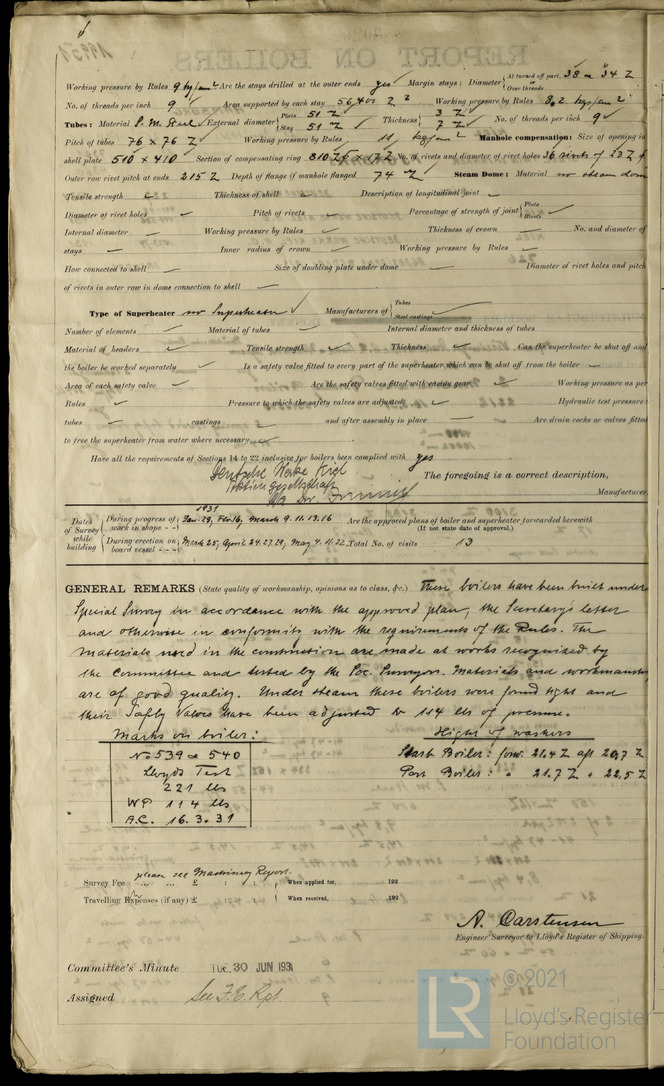 REPORT ON BOILERS
Working pressure by Rules 9 kg/cm² Are the stays drilled at the outer ends yes Margin stays: Diameter { At turned off part, or Over threads 38 34
No. of threads per inch 9 Area supported by each stay Working pressure by Rules 8.2 kg/cm²
Tubes: Material S. M. Steel External diameter { Plain 51 Stay 51 Thickness { 3 7 No. of threads per inch 9
Pitch of tubes 76 x 76 Working pressure by Rules 11 kg/cm² Manhole compensation: Size of opening in
shell plate 510 x 410 Section of compensating ring No. of rivets and diameter of rivet holes 36 rivets of 23
Outer row rivet pitch at ends 215 Depth of flange if manhole flanged 74 Steam Dome: Material no steam dom
Tensile strength Thickness of shell Description of longitudinal joint
Diameter of rivet holes Pitch of rivets Percentage of strength of joint { Plate Rivets
Internal diameter Working pressure by Rules Thickness of crown No. and diameter of
stays Inner radius of crown Working pressure by Rules
How connected to shell Size of doubling plate under dome Diameter of rivet holes and pitch
of rivets in outer row in dome connection to shell
Type of Superheater no Superheater Manufacturers of { Tubes Steel castings
Number of elements Material of tubes Internal diameter and thickness of tubes
Material of headers Tensile strength Thickness Can the superheater be shut off and
the boiler be worked separately Is a safety valve fitted to every part of the superheater which can be shut off from the boiler
Area of each safety valve Are the safety valves fitted with easing gear Working pressure as per
Rules Pressure to which the safety valves are adjusted Hydraulic test pressure:
tubes castings and after assembly in place Are drain cocks or valves fitted
to free the superheater from water where necessary
Have all the requirements of Sections 14 to 22 inclusive for boilers been complied with yes
Deutsche Werke Kiel
Aktiengesellschaft
The foregoing is a correct description,
Manufacturer.
Dates of Survey while building
1931
During progress of work in shops - - Jan. 29, Feb. 16, March 9. 11. 13. 16 Are the approved plans of boiler and superheater forwarded herewith
(If not state date of approval.)
During erection on board vessel - - - March 25, April 24. 27. 29, May 4. 11. 22. Total No. of visits 13
GENERAL REMARKS (State quality of workmanship, opinions as to class, &c.) These boilers have been built under
Special Survey in accordance with the approved plan, the Secretary's letter
and otherwise in conformity with the requirements of the Rules. The
materials used in the construction are made at works recognized by
the Committee and tested by the Soc. Surveyors. Materials and workmanship
are of good quality. Under steam these boilers were found tight and
their Safety Valves have been adjusted to 114 lbs of pressure.
Marks on boiler:
No 539 & 540
Lloyds Test
221 lbs
WP 114 lbs
A.C. 16.3.31
Hight of washers
Starb Boiler: forw. 21,4 aft 20,7
Port Boiler: " 21.7 " 22,5
please see Machinery Report.
Survey Fee ... ... £ : : When applied for, 192
Travelling Expenses (if any) £ : : When received, 192
A. Carstensen
Engineer Surveyor to Lloyd's Register of Shipping.
Committee's Minute TUE. 30 JUN 1931
Assigned See F.E. Rpt.
© 2021
LR
Lloyd's Register
Foundation